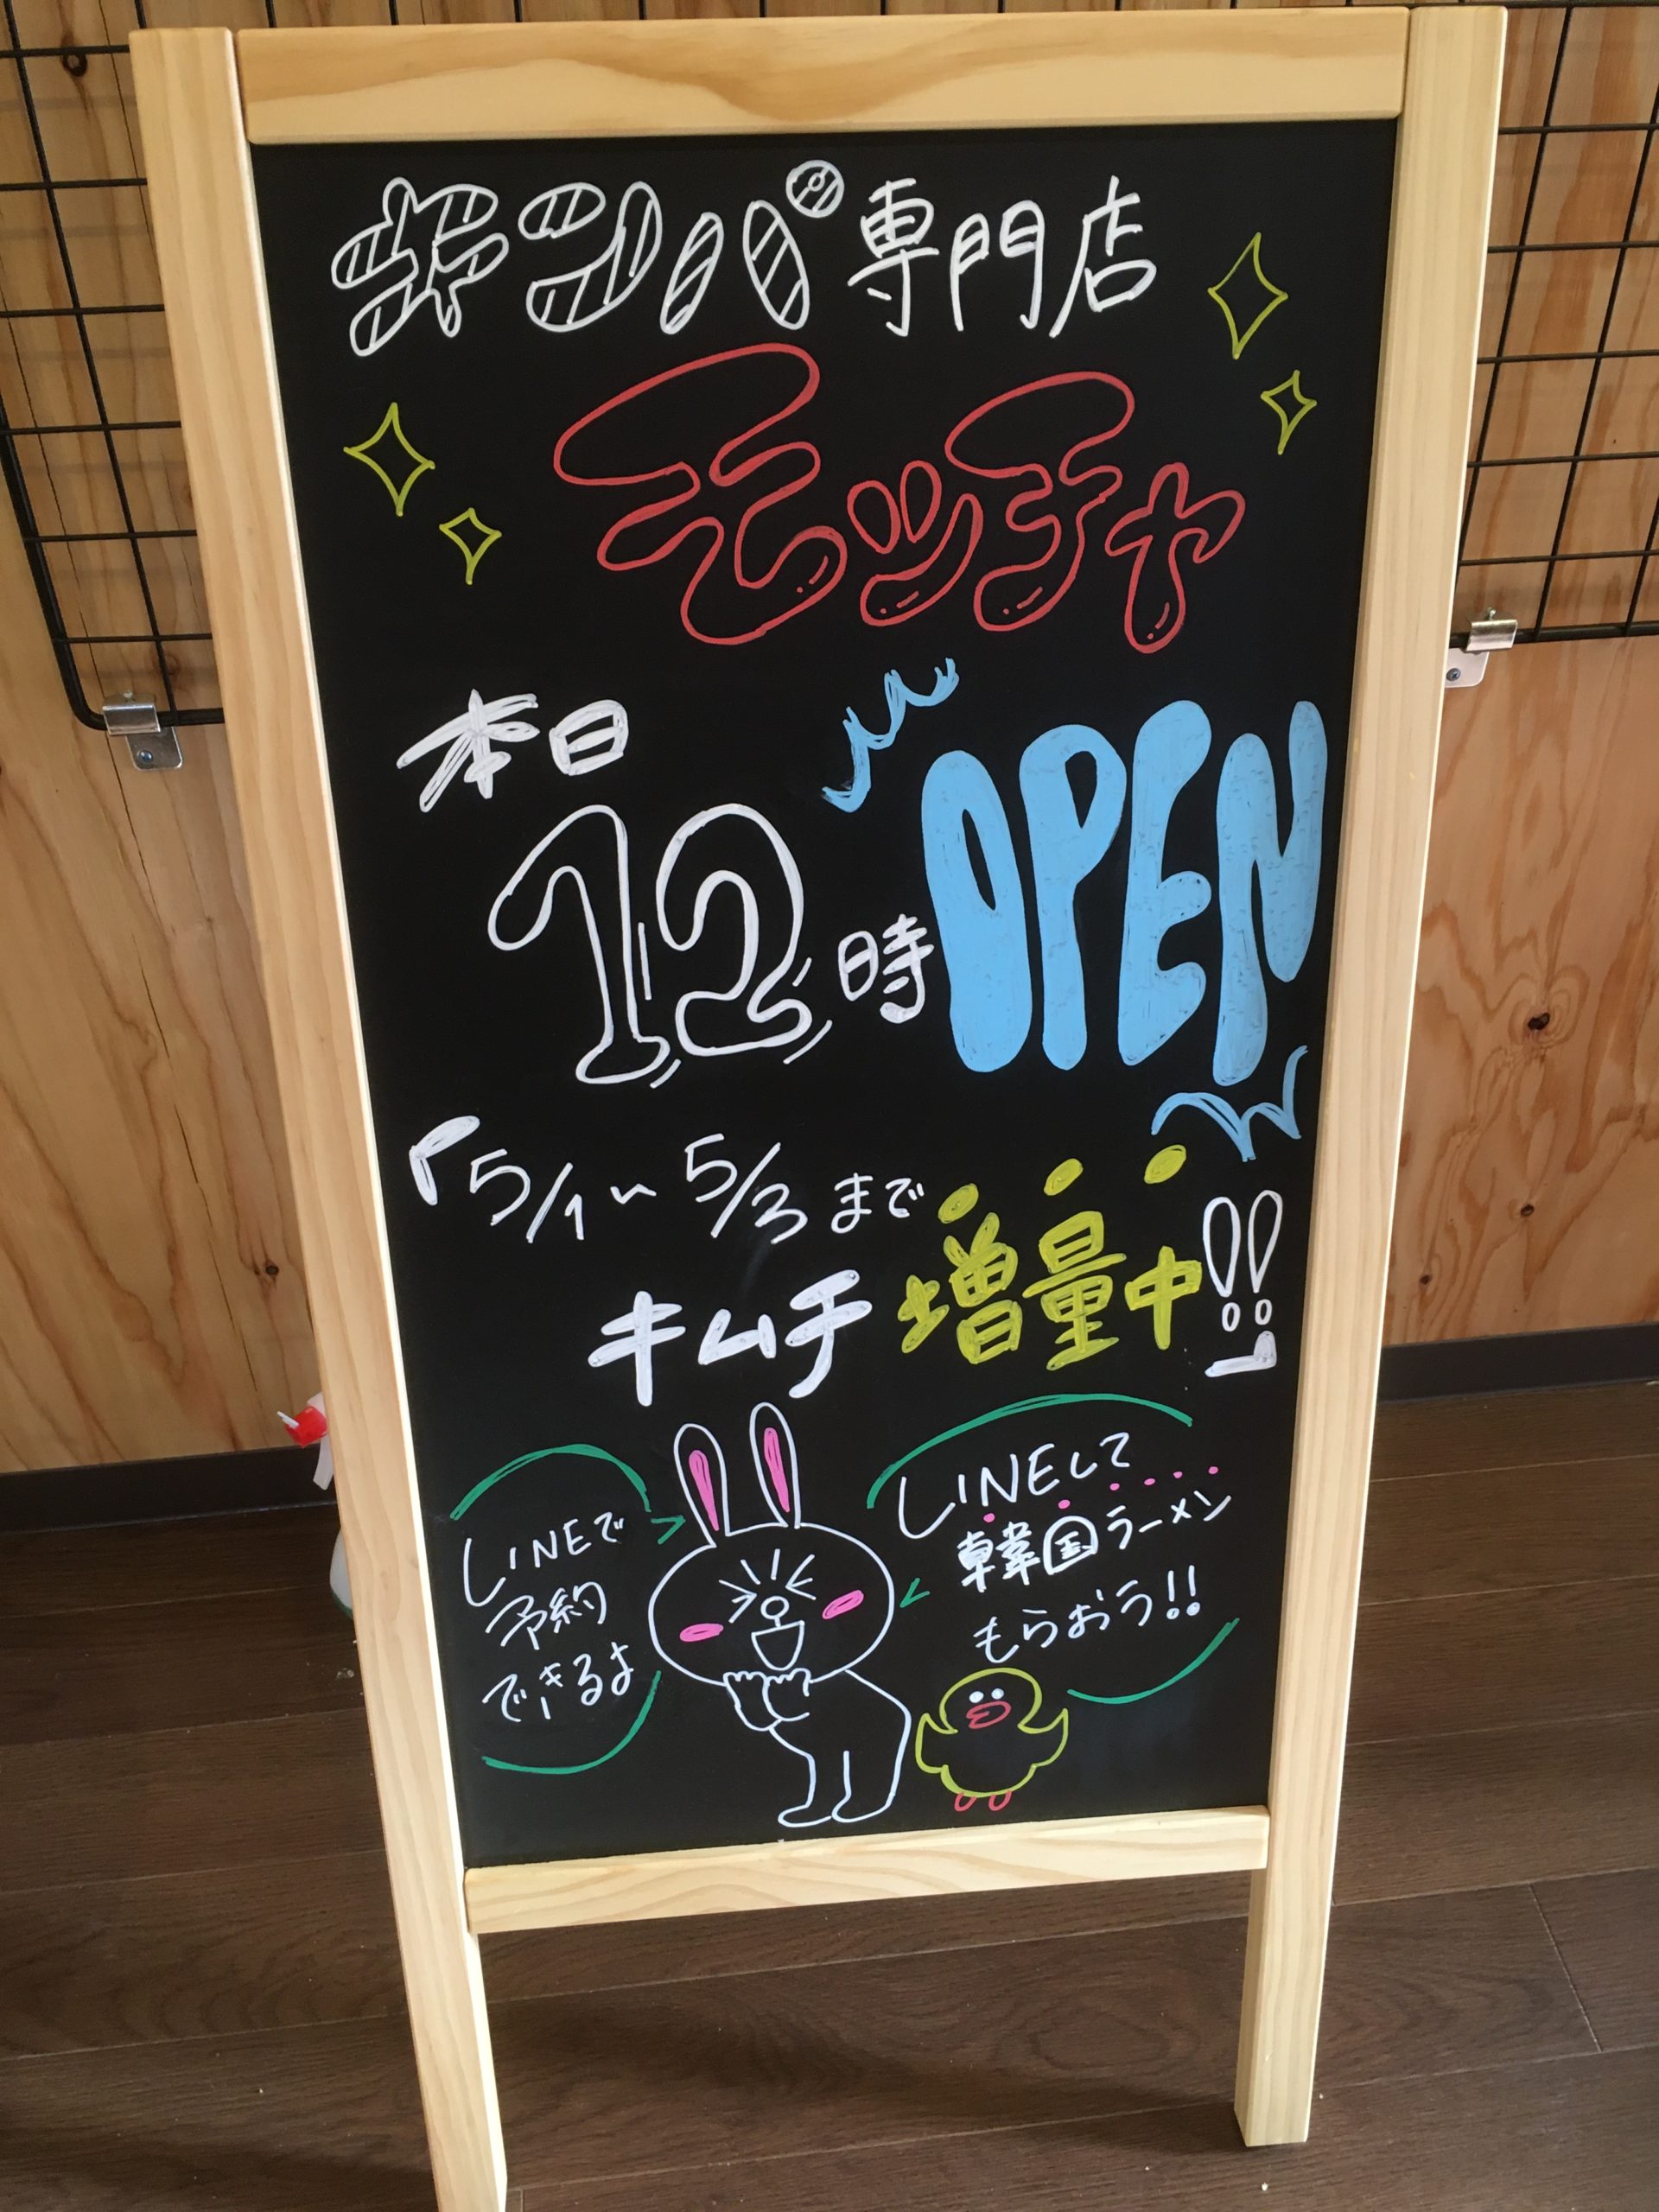 キンパ専門店
モッチャ
本日
12時OPEN
「5/1〜5/3まで
キムチ増量中!!」
LINEで
予約
できるよ
LINEして
韓国ラーメン
もらおう!!